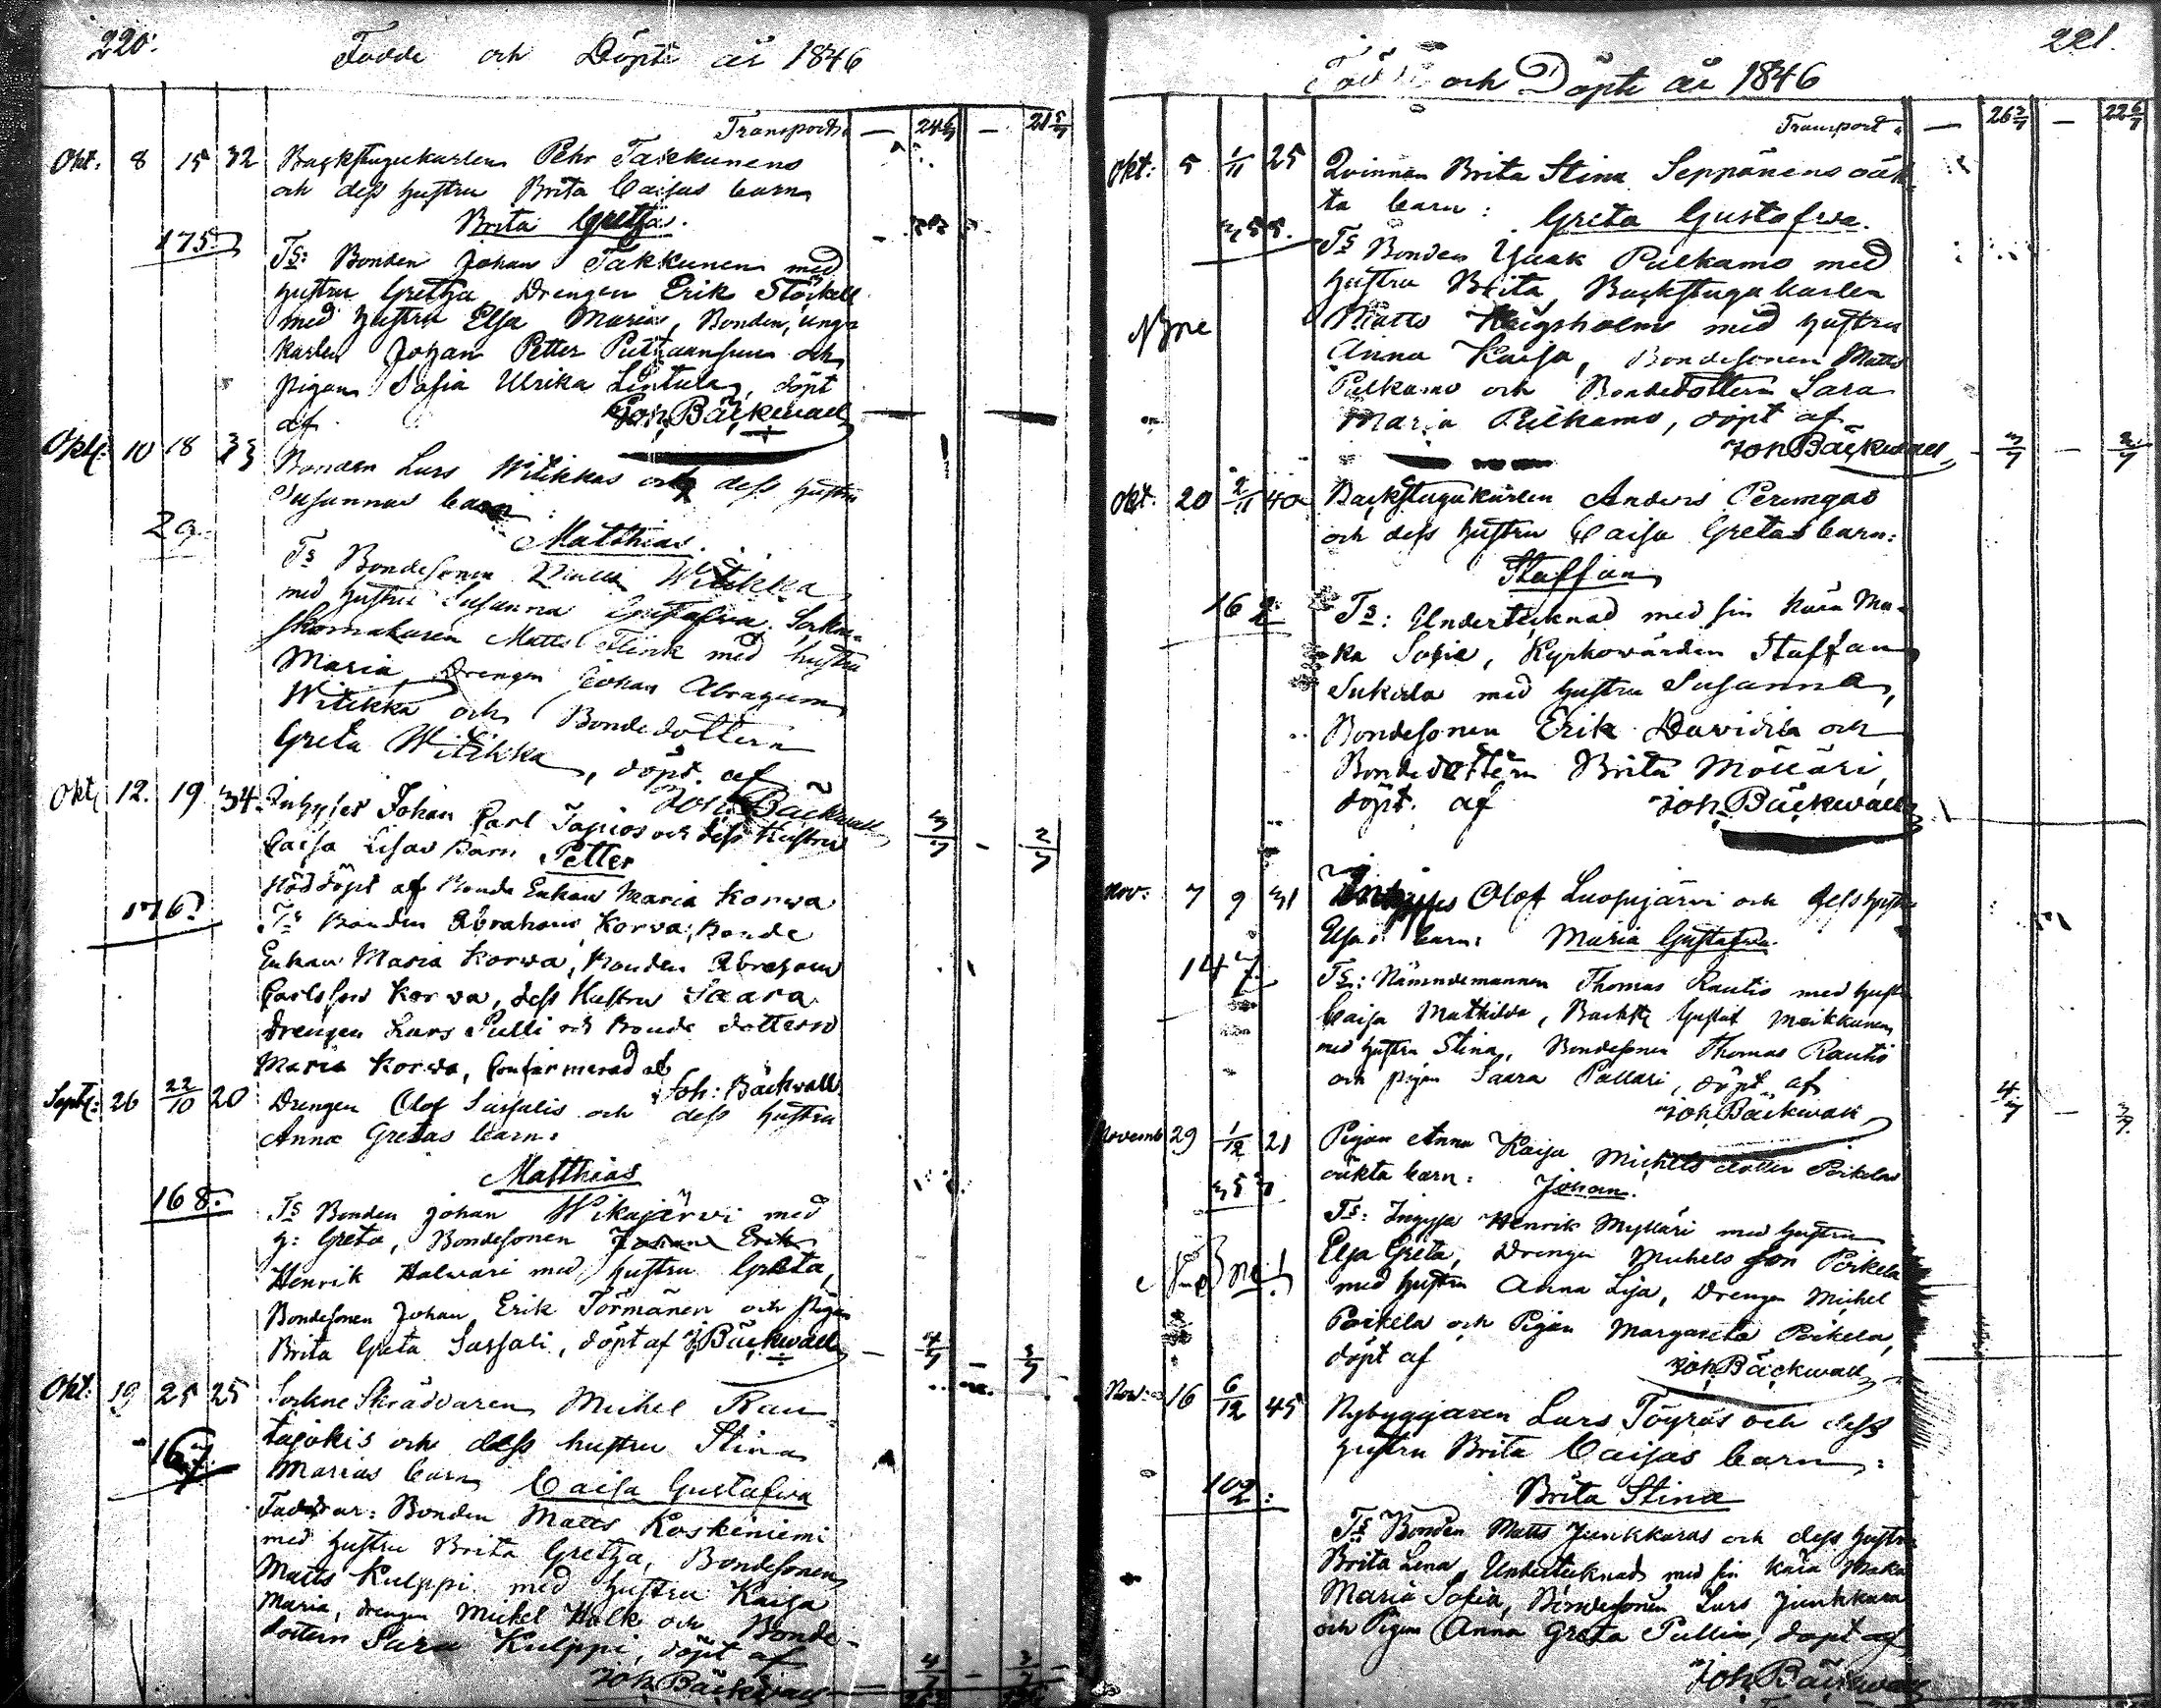 220.
Födde och Döpte år 1846
Transport:
— 24 6/7 — 21 5/7
Okt: 8 15 32 Backstugukarlen Pehr Takkunens
och dess hustru Brita Caisas barn
Brita Gretha.
175.
Ts: Bonden Johan Takkunen med
hustru Gretha, Drengen Erik Stöckell
med hustru Elsa Maria, Bonden, unga
karlen Johan Petter Puthaansuu och
pigan Sofia Ulrika Lintula, döpt
af Joh. Bäckwall
Okt: 10 18 33 Bonden Lars Witikkas och dess hustru
Susannas barn:
29.
Matthias.
Ts Bondesonen Witikka
med hustru Susanna Gustafwa. Sockne-
skomakaren Matts Flink med hustru
Maria, Drengen Johan Abraham
Witikka och Bondedottern
Greta Witikka, döpt. af
Joh. Bäckwall
Okt. 12. 19 34. Inhyses Johan Carl Tapios och dess Hustru
Caisa Lisas Barn Petter
3/7 — 2/7
nöddöpt af Bonde Enkan Maria Korwa
176.
Ts Bonden Abraham Korva, Bonde
Enkan Maria Korwa, Bonden Abraham
Carlsson Korwa, dess Hustru Saara
drengen Lars Pulli och Bonde dottern
Maria Korva, Confirmerad af
Joh: Bäckwall.
Sept: 26 22/10 20 Drengen Olof Sassalis och dess hustru
Anna Gretas barn:
Matthias
168.
Ts Bonden Johan Wikajärvi med
h: Greta, Bondesonen Johan Erik
Henrik Halwari med hustru Greta,
Bondesonen Johan Erik Törmänen och pigan
Brita Greta Sassali, döpt af J. Bäckwall
Okt: 19 25 25 Sockne Skräddaren Michel Rau-
tajokis och dess hustru Stina
167.
Marias barn Caisa Gustafwa
Faddrar: Bonden Matts Koskiniemi
med hustru Brita Gretha, Bondesonen
Matts Kulppi med hustru Kaisa
Maria, drengen Mickel Halk och Bonde-
dottern Sara Kulppi, döpt af
Joh. Bäckwall
221.
Födde och Döpte år 1846
Transport:
— 26 2/7 — 22 6/7
Okt: 5 1/11 25 Qvinnan Brita Stina Seppänens oäk-
ta barn: Greta Gustafwa.
355.
Ts Bonden Isak Pulkamo med
hustru Brita, Backstugukarlen
Matts Krigsholm med hustru
Anna Kaisa, Bondesonen Matts
Pulkamo och Bondedottern Sara
Maria Pulkamo, döpt af
Joh. Bäckwall
3/7 — 2/7
Okt. 20 2/11 40 Backstugukarlen Anders Perungas
och dess hustru Caisa Gretas barn:
Staffan
162.
Ts: Undertecknad med sin kära Ma-
ka Sofie, Kyrkowärden Staffan
Sukula med hustru Susanna,
Bondesonen Erik Davidila och
Bondedottern Brita Möllari,
döpt. af Joh. Bäckwall
Nov: 7 9 31 Inhyses Olof Luopajärvi och dess hustru
Elsas barn: Maria Gustafwa.
147.
Ts: Nämndemannen Thomas Rautio med hustru
Caisa Mathilda, Backst. Gustaf Moikkunen
med hustru Stina, Bondesonen Thomas Rautio
och pigan Saara Pallari, döpt af
Joh. Bäckwall
4/7 — 3/7
Novemb 29 1/12 21 Pigan Anna Kaisa Michels dotter Poikelas
oäkta barn: Johan.
Ts: Inhyses Henrik Mylläri med hustru
Elsa Greta, Drengen Michels son Poikela
med hustru Anna Lisa, Drengen Michel
Poikela och Pigan Margareta Poikela,
döpt af Joh. Bäckwall
Nov: 16 6/12 45 Nybyggaren Lars Töyräs och dess
hustru Brita Caisas barn:
102:
Brita Stina
Ts Bonden Matts Junkkaras och dess hustru
Brita Lena, Undertecknad med sin kära Maka
Maria Sofia, Bondesonen Lars Junkkara
och Pigan Anna Greta Pullin, döpt af
Joh. Bäckwall